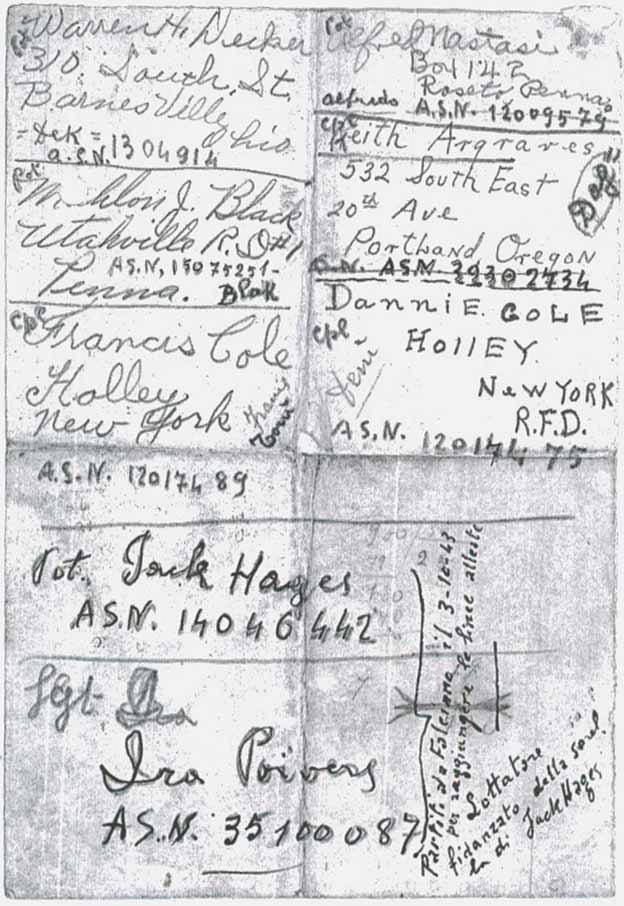 pvt
Warren H. Decker
310 South St.
Barnesville
Ohio
= DEK =
A.S.N. 1304914
pvt
Mahlon J. Black
Utahville R.D#1
A.S.N. 15075251-
Penna. Blak
cpl
Francis Cole
Holley
New York
A.S.N. 12017489
pvt
Alfred Nastasi
Box 142
Roseto Penna
alfredo A.S.N. 12009579
cpl
Keith Argraves
532 South East
20th Ave
Portland Oregon
A.S.N. 39302434
Dannie COLE
cpl- HollEY
NeW YORK
R.F.D.
A.S.N. 12017475
Pvt. Jack Hages
A.S.N. 14046442
Sgt
Ira Poivers
A.S.N. 35100087
Partiti da Falerina il 3-10-43
per raggiungere le linee alleate
Lottatore
fidanzato della sorel
la di Jack Hages